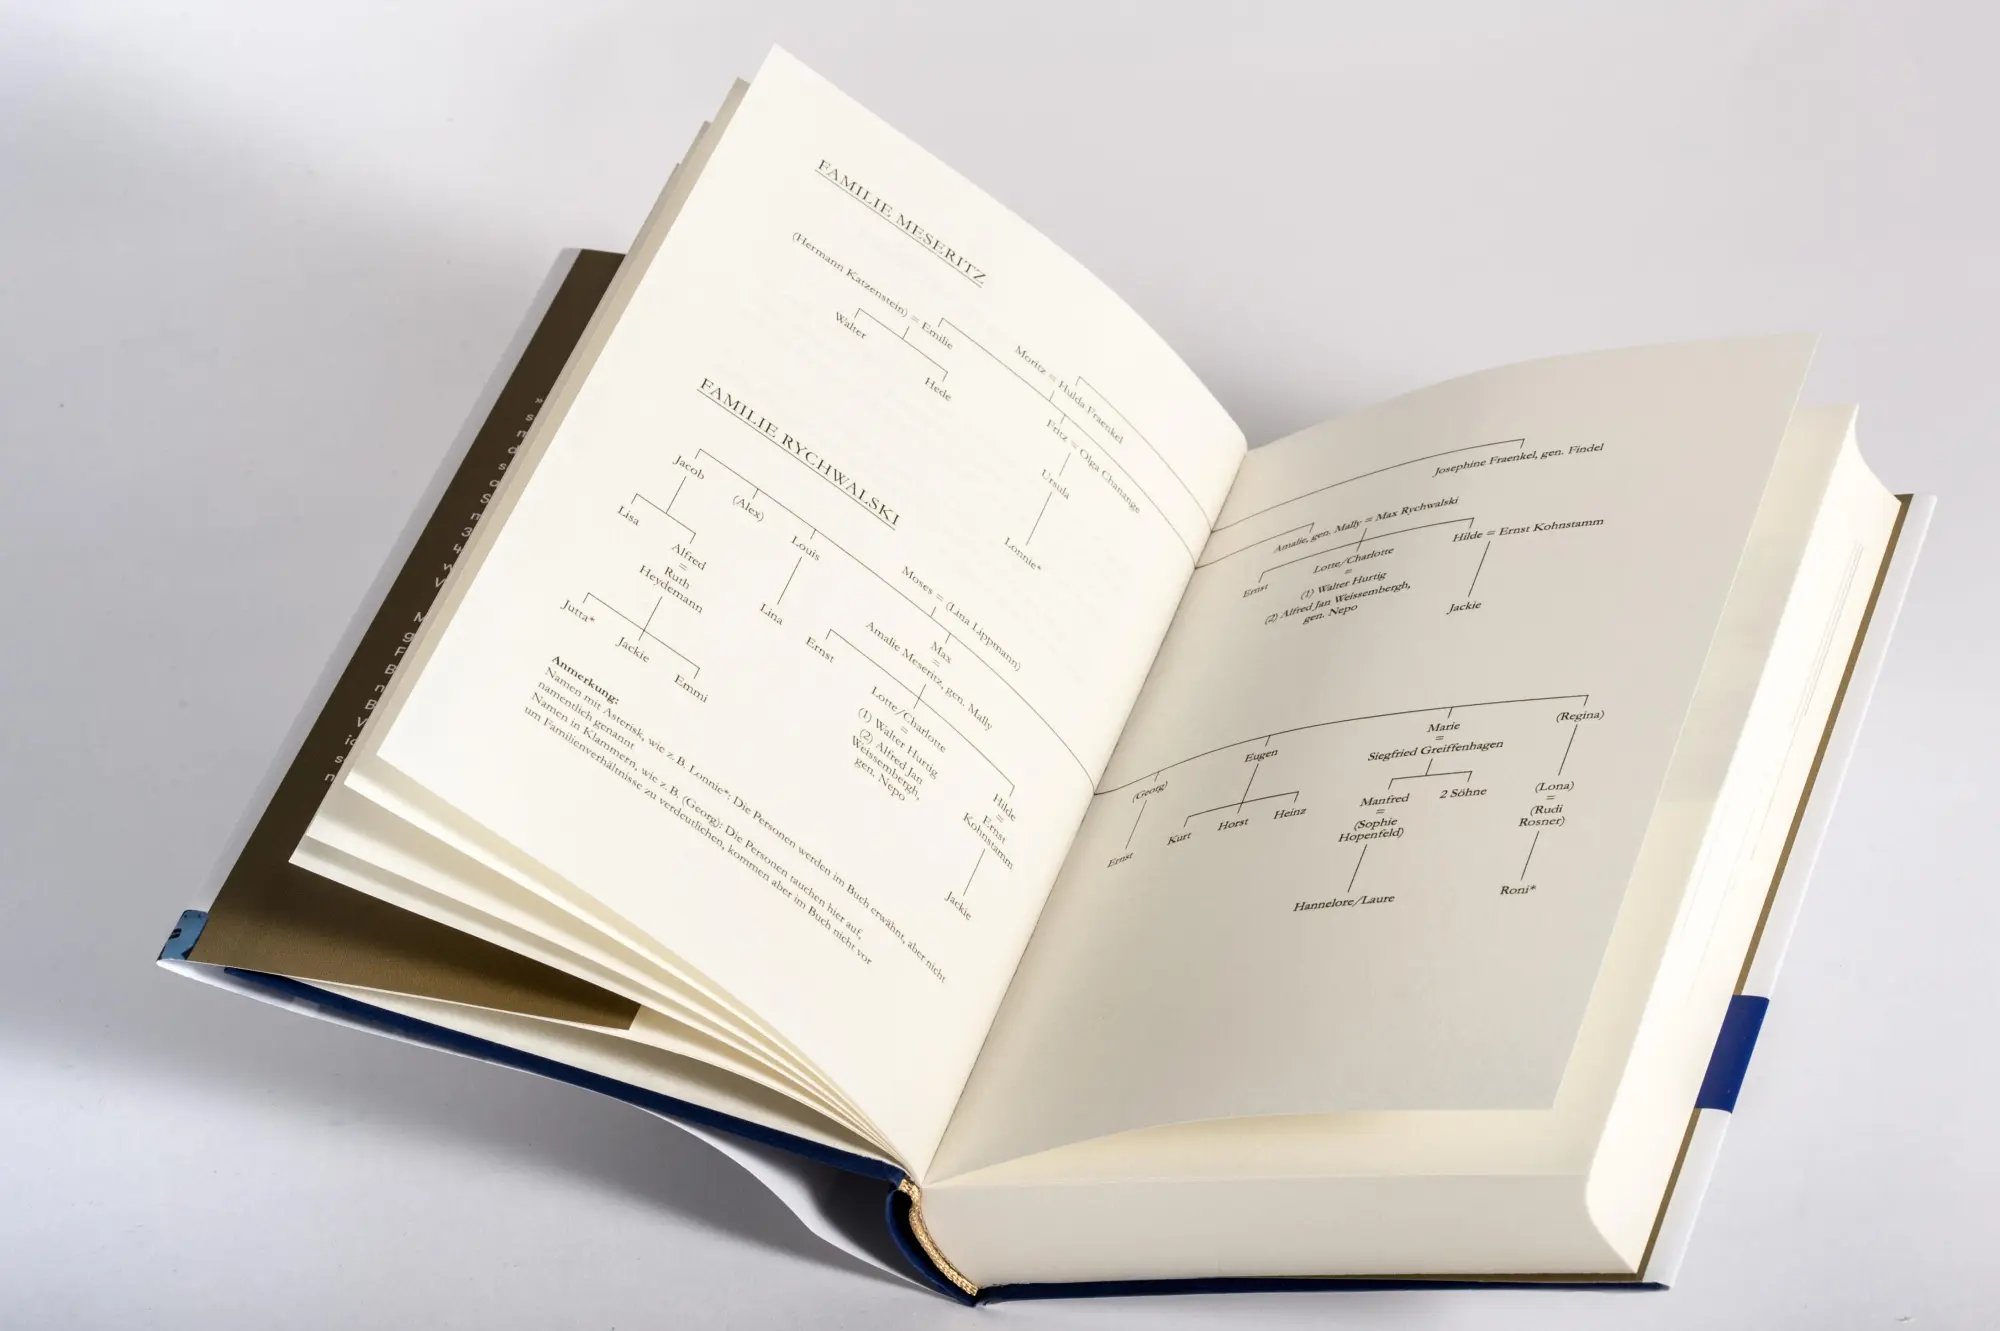 FAMILIE MESERITZ
(Hermann Katzenstein) = Emilie
Walter
Hede
Moritz = Hulda Fraenkel
Fritz = Olga Chanange
Ursula
Lonnie*
Josephine Fraenkel, gen. Findel
Amalie, gen. Mally = Max Rychwalski
Ernst
Lotte/Charlotte
=
(1) Walter Hurtig
(2) Alfred Jan Weissembergh,
gen. Nepo
Hilde = Ernst Kohnstamm
Jackie
FAMILIE RYCHWALSKI
Jacob
Lisa
Alfred
=
Ruth
Heydemann
Jutta*
Jackie
Emmi
(Alex)
Louis
Lina
Moses = (Lina Lippmann)
Max
=
Amalie Meseritz, gen. Mally
Ernst
Lotte/Charlotte
=
(1) Walter Hurtig
(2) Alfred Jan
Weissembergh,
gen. Nepo
Hilde
=
Ernst
Kohnstamm
Jackie
(Georg)
Ernst
Eugen
Kurt
Horst
Heinz
Marie
=
Siegfried Greiffenhagen
Manfred
=
(Sophie
Hopenfeld)
2 Söhne
Hannelore/Laure
(Regina)
(Lona)
=
(Rudi
Rosner)
Roni*
Anmerkung:
Namen mit Asterisk, wie z. B. Lonnie*: Die Personen werden im Buch erwähnt, aber nicht
namentlich genannt
Namen in Klammern, wie z. B. (Georg): Die Personen tauchen hier auf,
um Familienverhältnisse zu verdeutlichen, kommen aber im Buch nicht vor